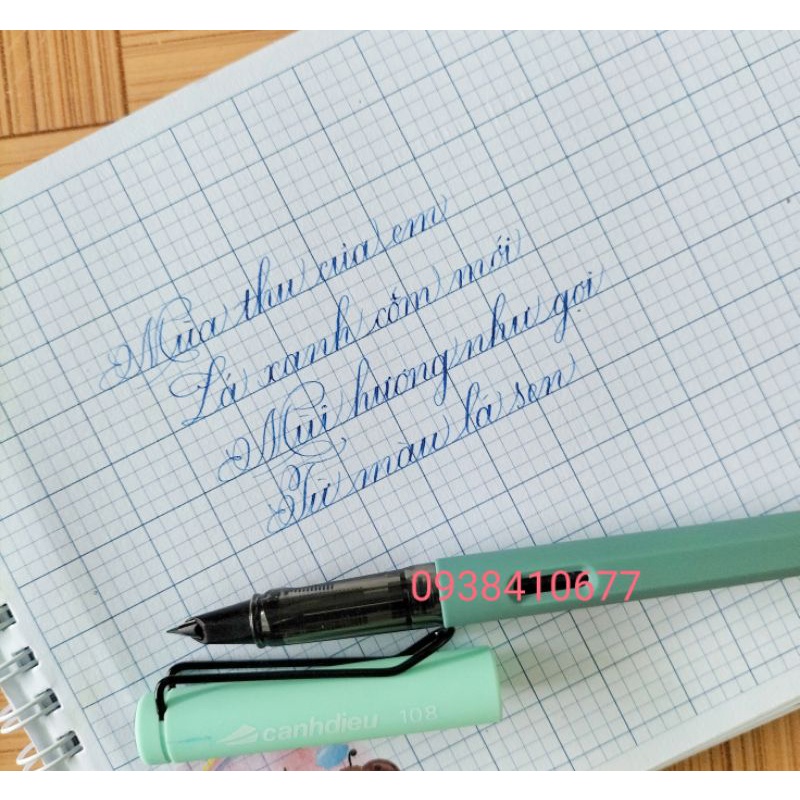 Mùa thu của em
Lá xanh cốm mới
Mùi hương như gợi
Từ màu lá sen
0938410677
canhdieu 108